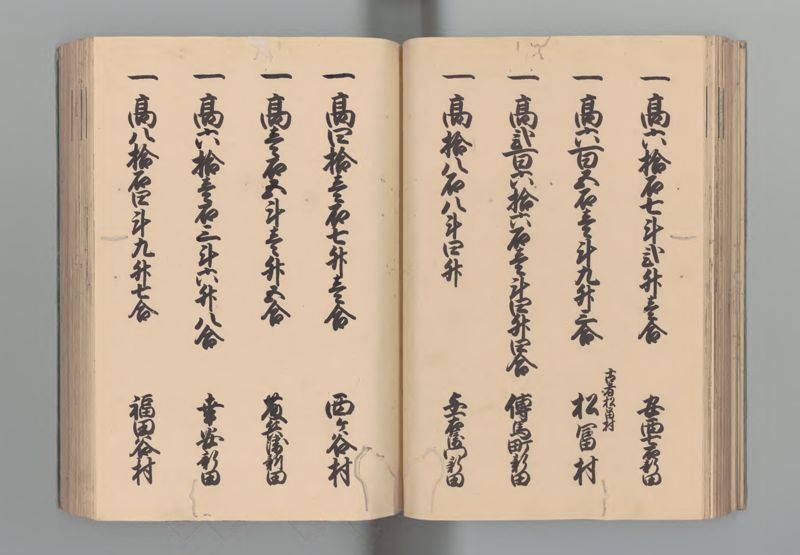 一 高六拾石七斗弐升壱合
一 高六百五石壱斗九升三合 古者松留村 松冨村
一 高弐百六拾六石壱斗四升四合 傳馬町新田
一 高拾八石八斗四升 与左衛門新田
一 高四拾壱石七升壱合 西ヶ谷村
一 高壱石五斗壱升五合 新田
一 高六拾壱石三斗六升八合 幸庵新田
一 高八拾石四斗九升七合 福田谷村